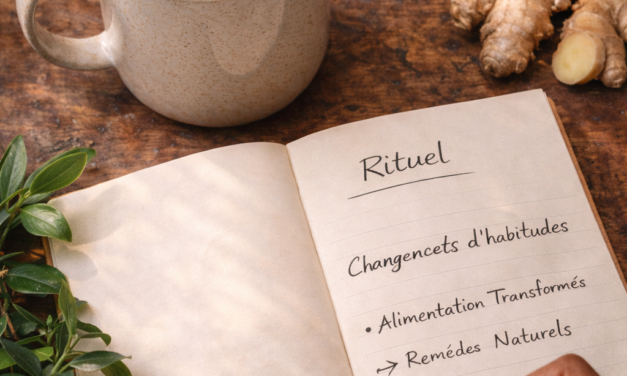 Rituel
Changencets d'habitudes
• Alimentation Transformés
→ Remédes Naturels